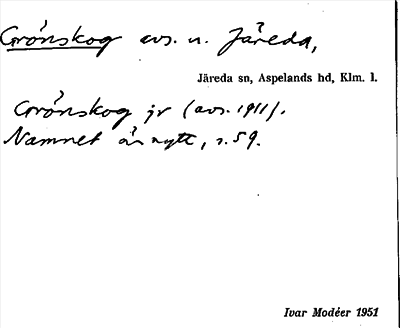 Grönskog avs. u. Järeda,
Järeda sn, Aspelands hd, Klm. l.
Grönskog jr (avs. 1911).
Namnet är nytt, s. 59.
Ivar Modéer 1951